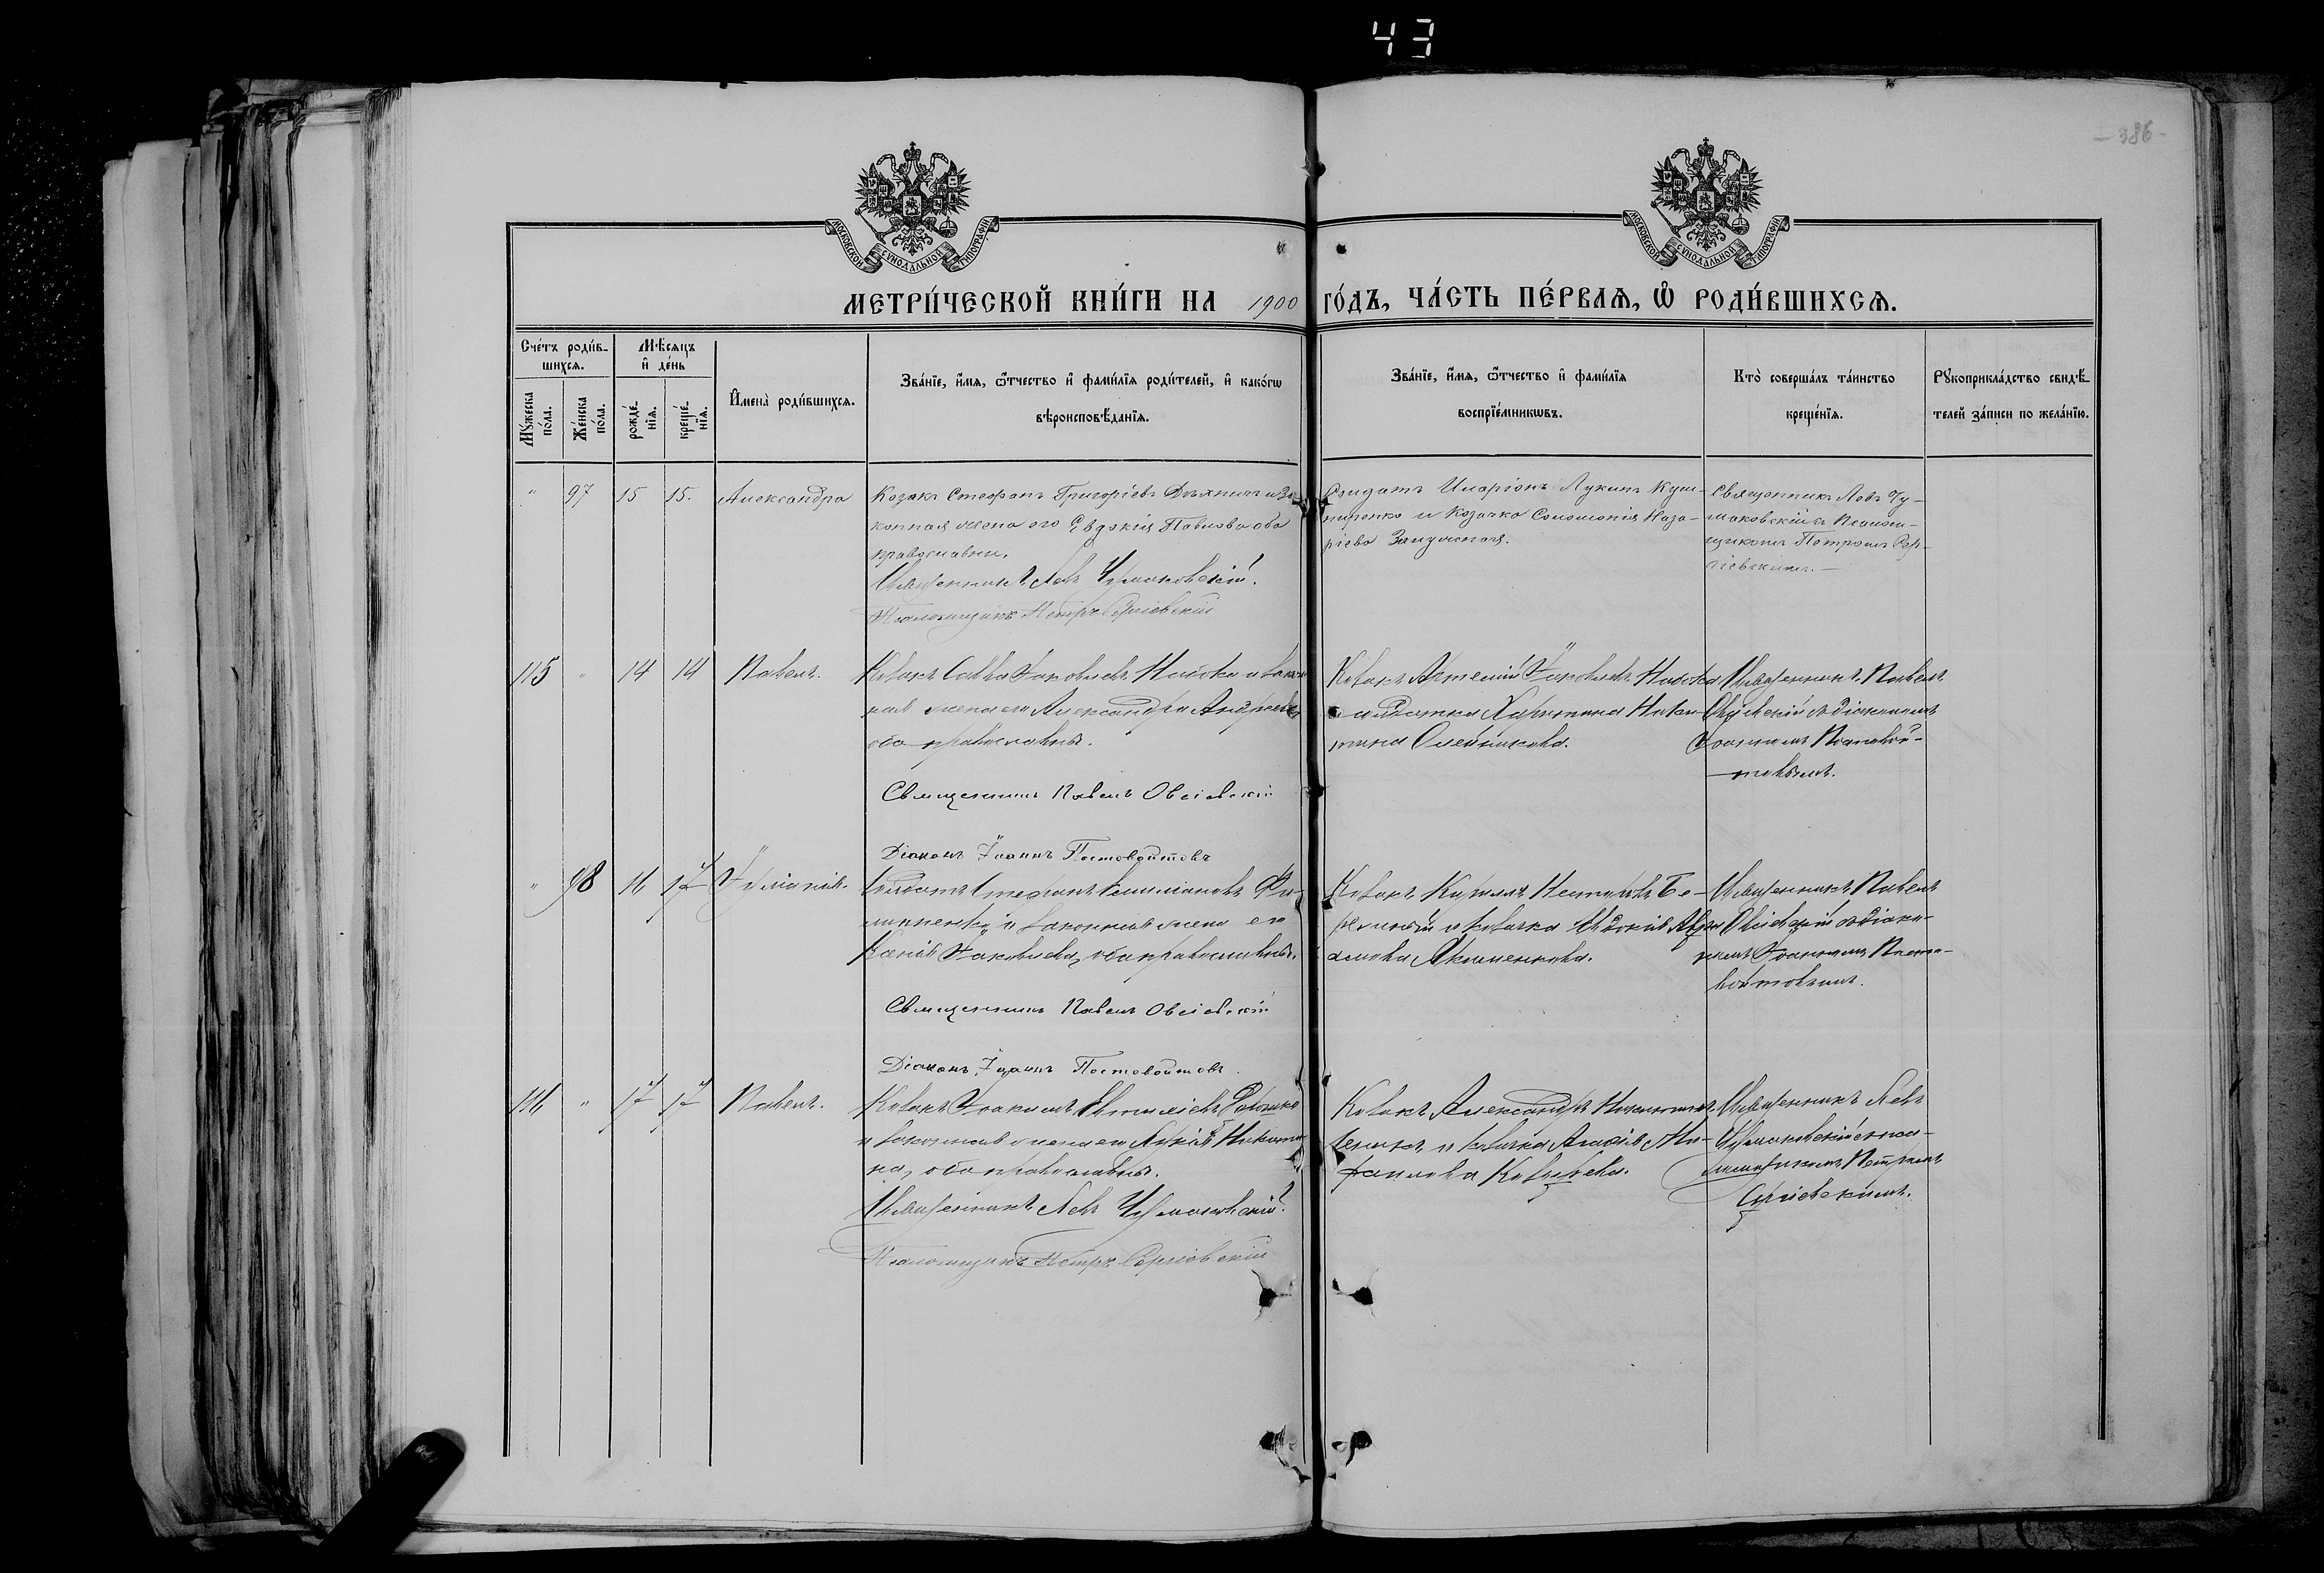 43
386
МОСКОВСКОЙ СѴНОДАЛЬНОЙ ТИПОГРАФІИ
МОСКОВСКОЙ СѴНОДАЛЬНОЙ ТИПОГРАФІИ
МЕТРИ́ЧЕСКОЙ КНИ́ГИ НА 1900 ГО́ДЪ, ЧА́СТЬ ПЕ́РВАѦ, Ѽ РОДИ́ВШИХСѦ.
Сче́тъ роди́в-
шихсѧ.
Мꙋ́жеска
по́ла.
Же́нска
по́ла.
Мѣ́сѧцъ
и҆ де́нь
рожде́-
нїѧ.
креще́-
нїѧ.
И҆мена̀ роди́вшихсѧ.
Зва́нїе, и҆́мѧ, ѻ҆́тчество и҆ фами́лїѧ роди́телей, и҆ како́гѡ
вѣроисповѣ́данїѧ.
Зва́нїе, и҆́мѧ, ѻ҆́тчество и҆ фами́лїѧ
воспрїе́мникѡвъ.
Кто̀ соверша́лъ та́инство
креще́нїѧ.
Рꙋкоприкла́дство свидѣ́-
телей за́писи по жела́нїю.
" 97 15 15. Александра
Козакъ Стефанъ Григоріевъ и за-
конная жена его Евдокія Павлова оба
православны.
Священникъ Левъ Чумаковскій.
Псаломщикъ Петръ Сергіевскій
Солдатъ Иларіонъ Лукинъ Куш-
ниренко и козачка Соломонія Наза-
ріева
Священникъ Левъ Чу-
маковскій съ Псалом-
щикомъ Петромъ Сер-
гіевскимъ.
115 " 14 14 Павелъ.
Козакъ Савва Іаковлевъ и закон
ная жена его Александра Андреева
оба православны.
Священникъ Павелъ Овсіевскій
Діаконъ Іоаннъ Постовойтовъ
Козакъ Артемій Іаковлевъ
и солдатка Харитина Ники-
тина Олейникова.
Священникъ Павелъ
Овсіевскій съ діакономъ
Іоанномъ Постовой-
товымъ.
" 98 16 17 Іуліанія.
Солдатъ Стефанъ Емиліановъ Фи-
липпенко и законная жена его
Ксенія Іаковлева, оба православны.
Священникъ Павелъ Овсіевскій
Діаконъ Іоаннъ Постовойтовъ.
Козакъ Кириллъ Бе-
и козачка Евдокія
Якименкова.
Священникъ Павелъ
Овсіевскій съ діако-
номъ Іоанномъ Посто-
войтовымъ.
116 " 17 17 Павелъ.
Козакъ Іоакимъ Евтихіевъ
и законная жена его Никити
на, оба православны.
Священникъ Левъ Чумаковскій.
Псаломщикъ Петръ Сергіевскій
Козакъ Александръ Никитинъ
и козачка Агафія Ми-
Козырева.
Священникъ Левъ
Чумаковскій съ пса-
ломщикомъ Петромъ
Сергіевскимъ.